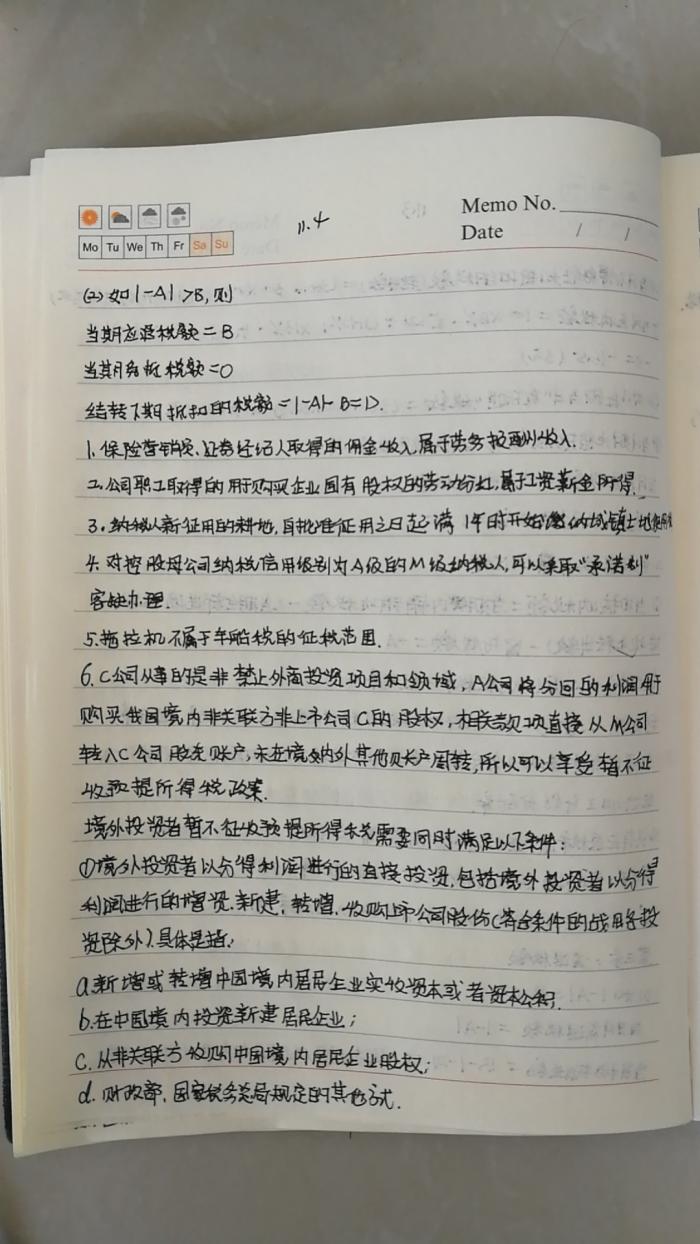 Mo Tu We Th Fr Sa Su
11.4
Memo No.
Date / /
(2)如|-A|>B,则
当期应退税额=B
当期免抵税额=0
结转下期抵扣的税额=|-A|-B=D.
1.保险营销员、证券经纪人取得的佣金收入,属于劳务报酬收入.
2.公司职工取得的用于购买企业国有股权的劳动分红,属于工资薪金所得.
3.纳税人新征用的耕地,自批准征用之日起满1年时开始缴纳城镇土地使用
4.对控股母公司纳税信用级别为A级的M级纳税人,可以采取“承诺制”
容缺办理.
5.拖拉机不属于车船税的征税范围.
6.C公司从事的是非禁止外商投资项目和领域,A公司将分回的利润用于
购买我国境内非关联方非上市公司C的股权,相关款项直接从M公司
转入C公司股东账户,未在境内外其他账户周转,所以可以享受暂不征
收预提所得税政策.
境外投资者暂不征收预提所得税需要同时满足以下条件:
①境外投资者以分得利润进行的直接投资,包括境外投资者以分得
利润进行的增资、新建、转增、收购上市公司股份(符合条件的战略投
资除外).具体是指:
a.新增或转增中国境内居民企业实收资本或者资本公积.
b.在中国境内投资新建居民企业;
c.从非关联方收购中国境内居民企业股权;
d.财政部、国家税务总局规定的其他方式.